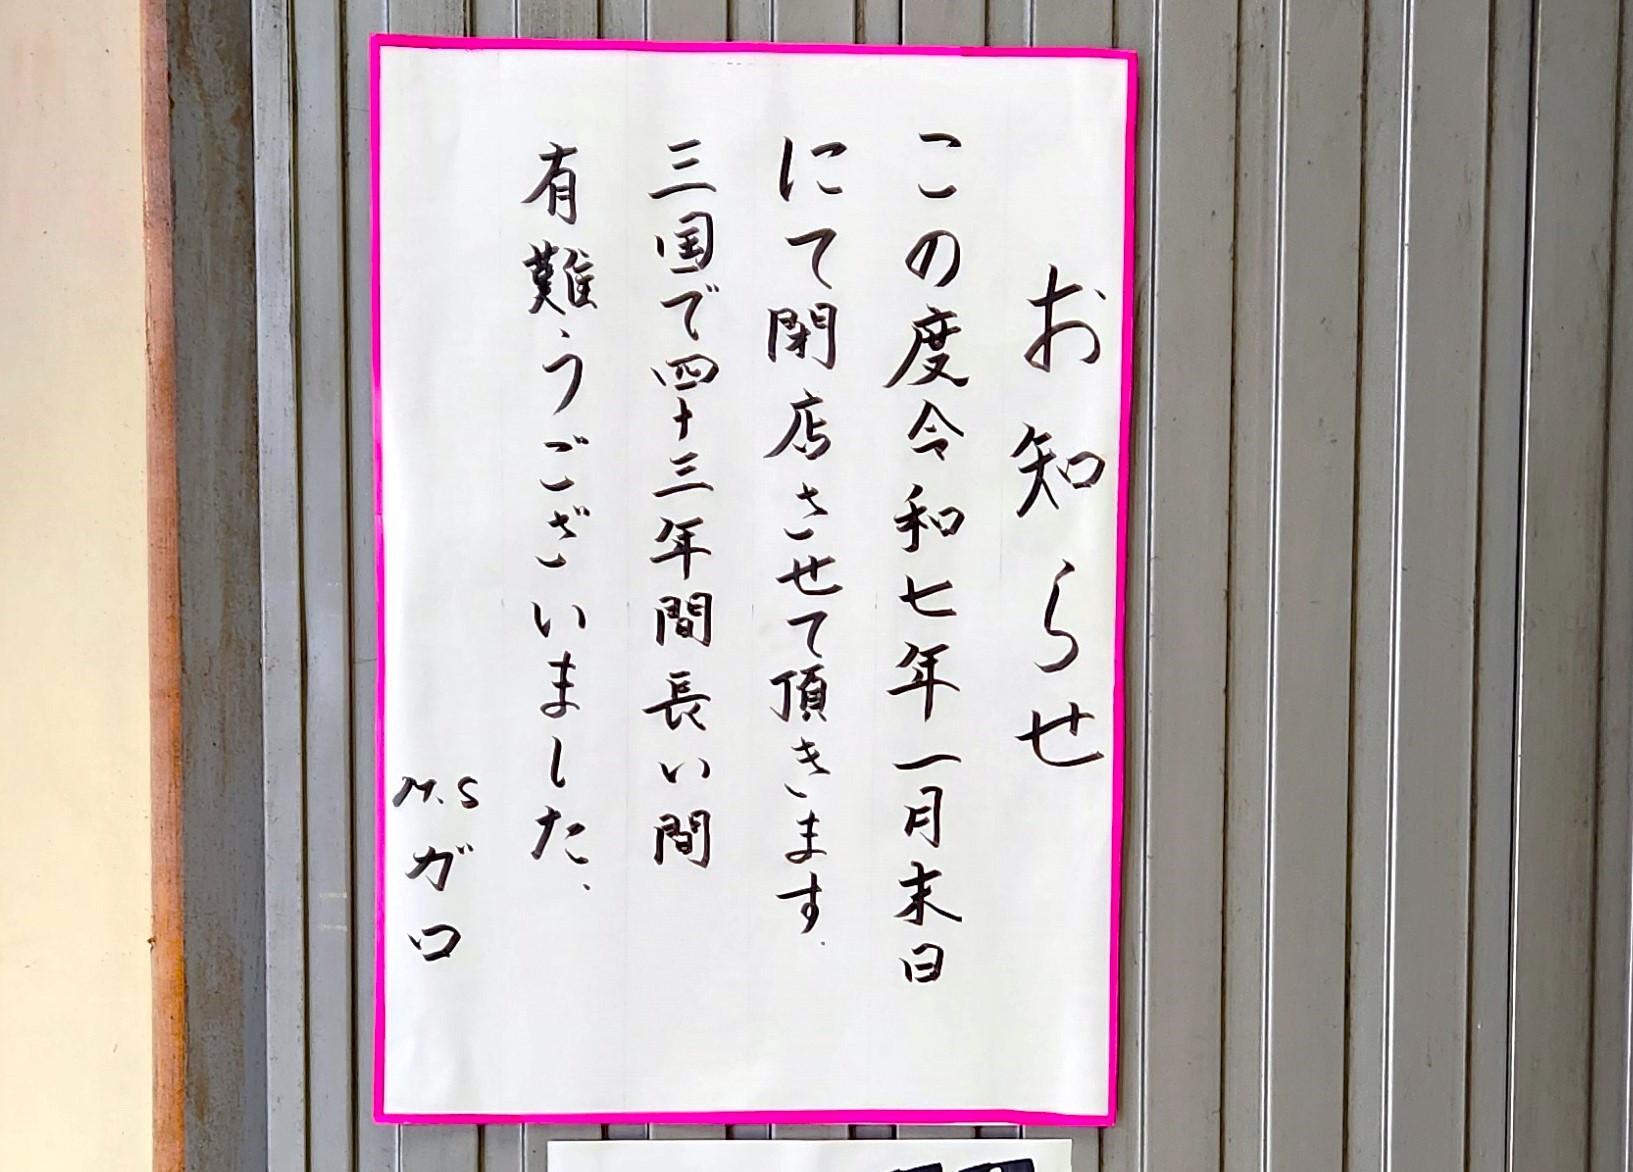 お知らせ
この度令和七年一月末日
にて閉店させて頂きます.
三国で四十三年間長い間
有難うございました、
M.S
ガロ